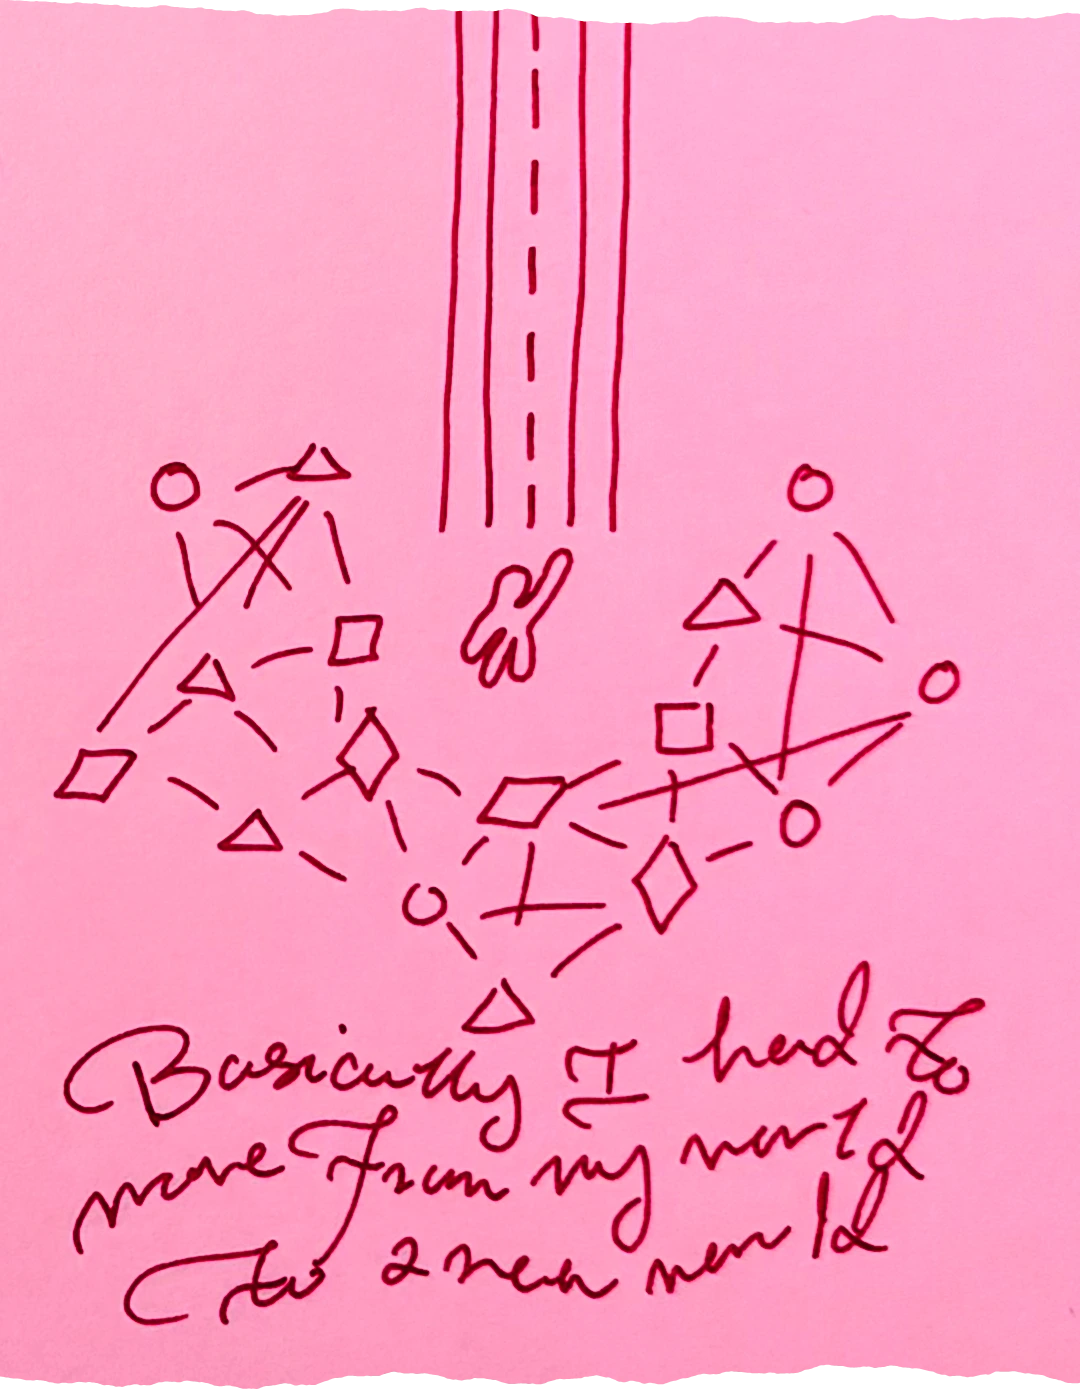 Basically I had to
move from my world
to a new world